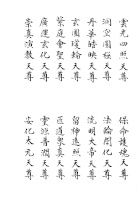 玄光四照天尊
洞空圓極天尊
丹華皓映天尊
玄圖琁輪天尊
紫庭會聖天尊
廣運玄化天尊
崇真演教天尊
保命護魂天尊
法輪開化天尊
流明大帝天尊
留神遠照天尊
道聚真天尊
重潤天尊
安化太元天尊